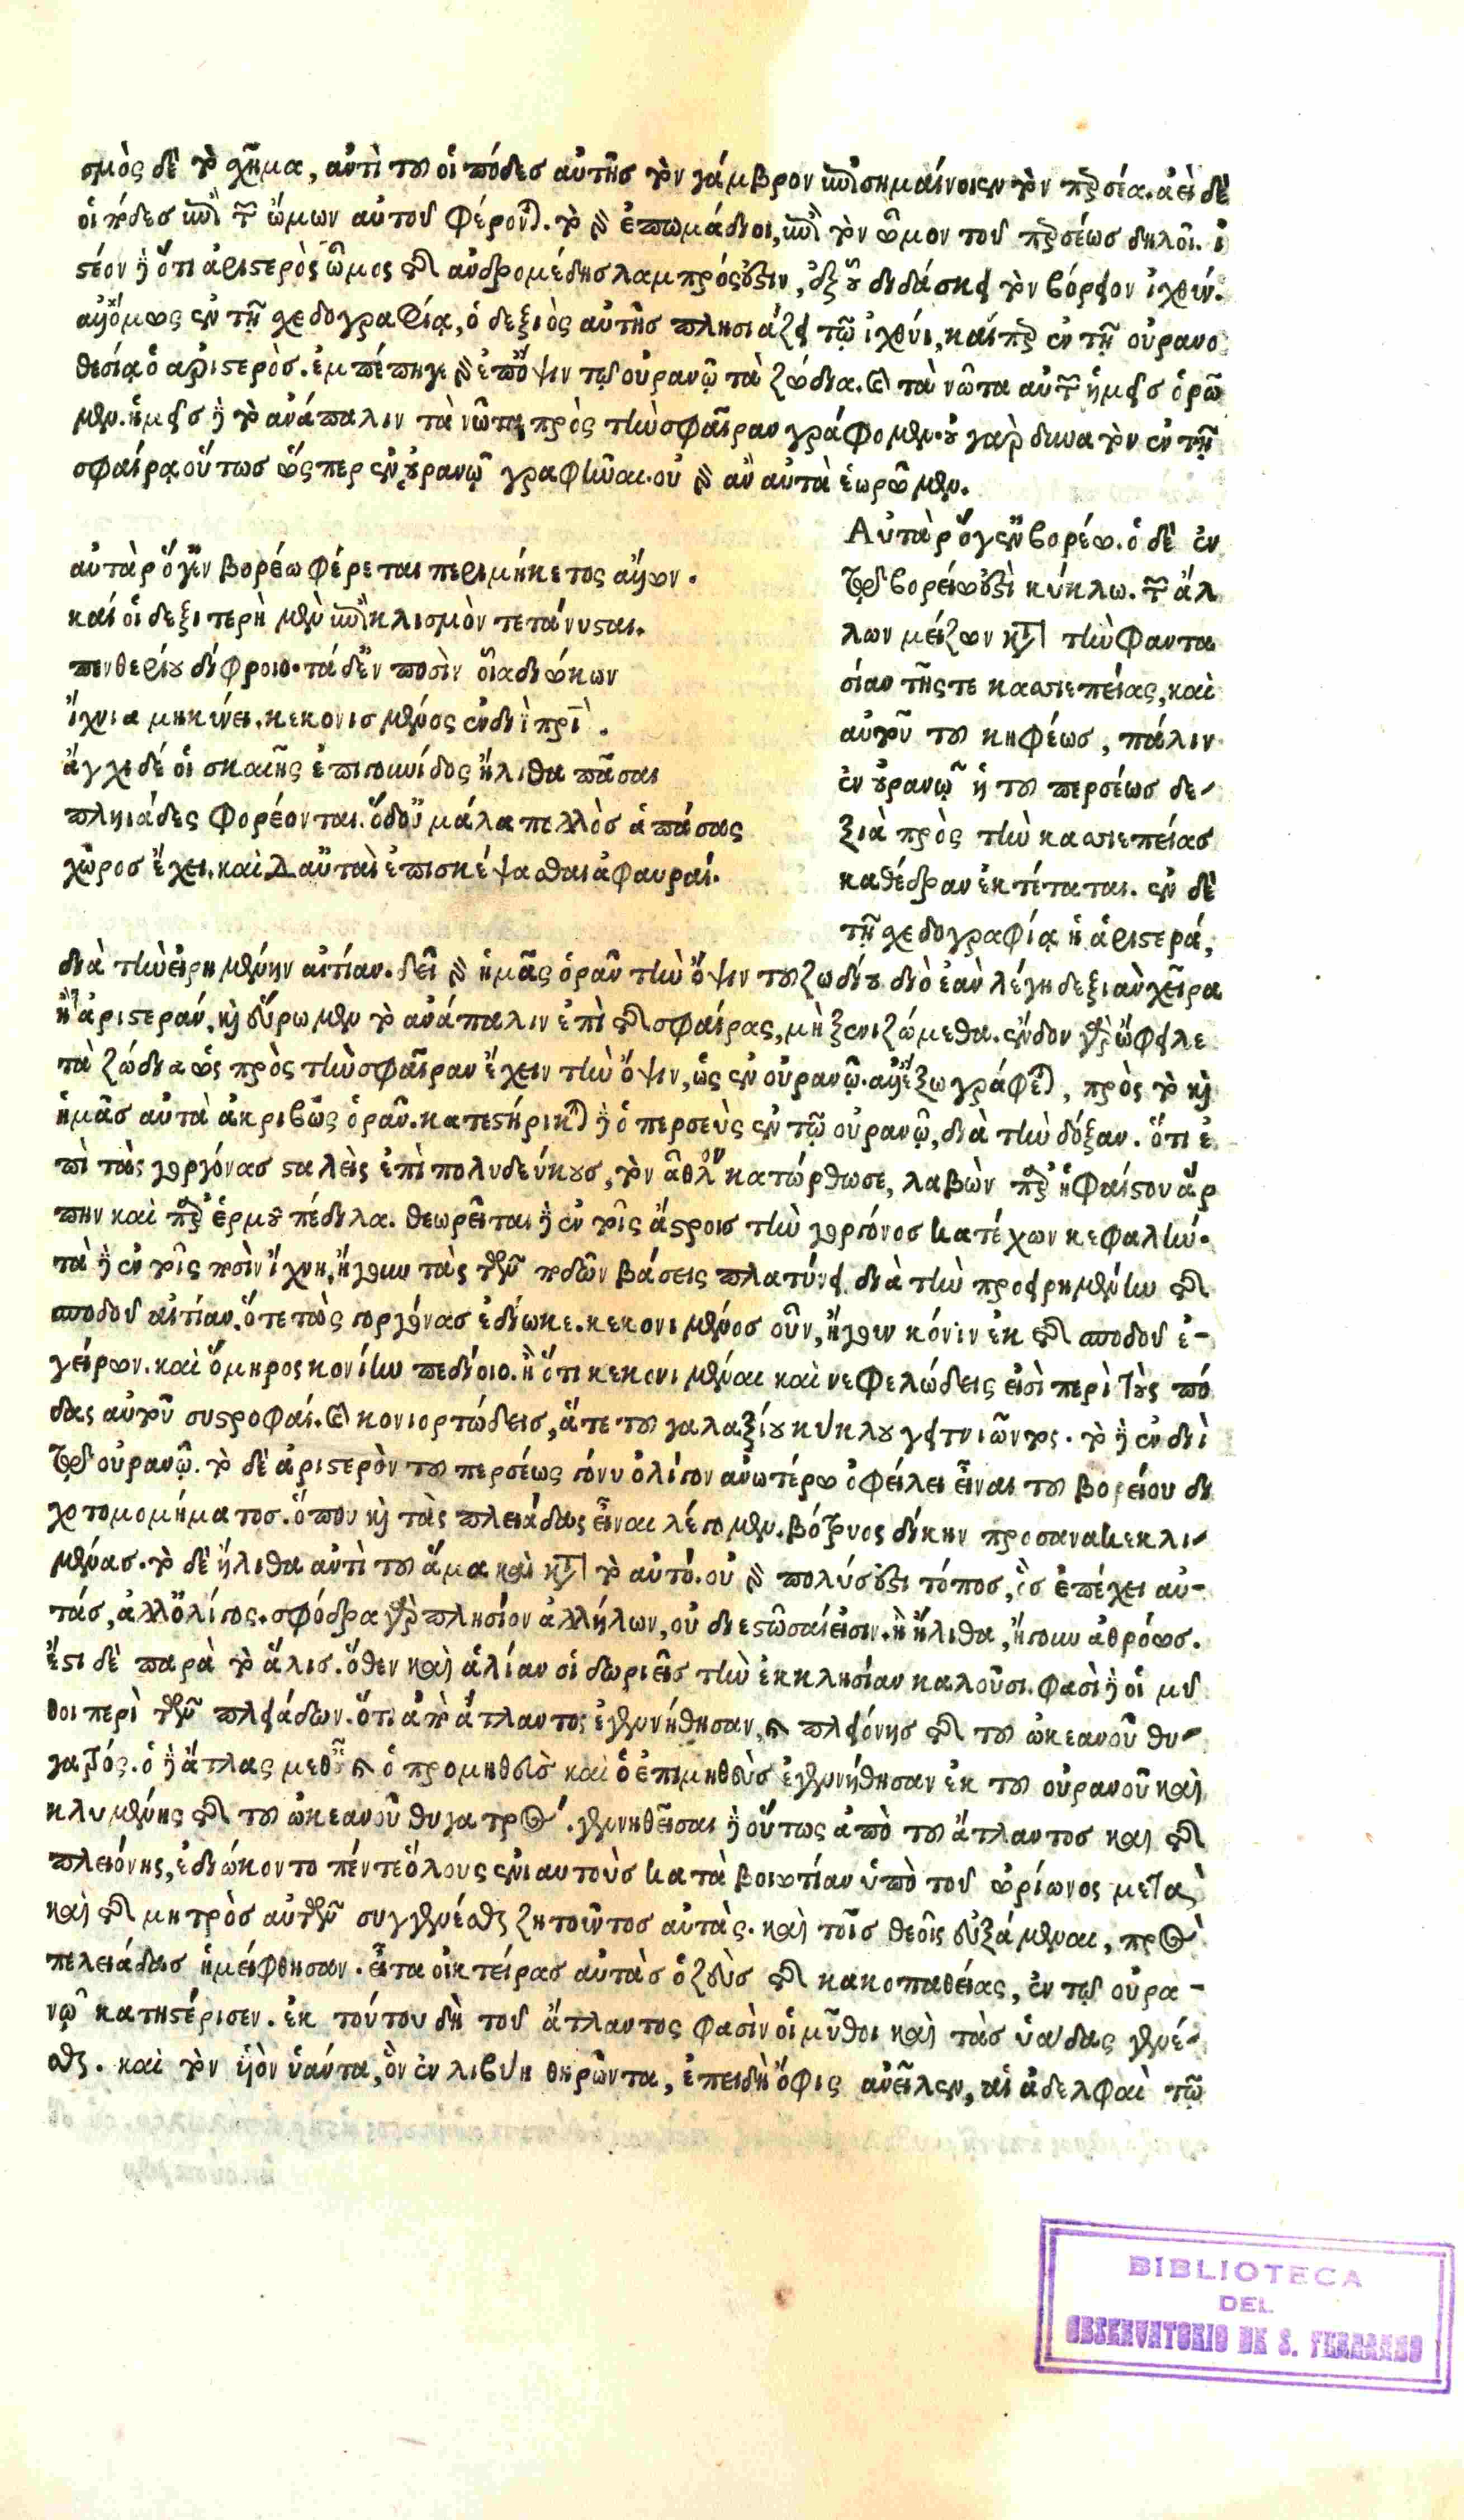 σμὸς δὲ τὸ σχῆμα, ἀντὶ τοῦ οἱ πόδεσ αὐτῆσ τὸν γάμβρον ἐπισημαίνοιεν τὸν περσέα. ἀεὶ δὲ
οἱ πόδεσ ἐπὶ τῶν ὤμων αὐτοῦ φέρονται. τὸ γὰρ ἐπωμάδιοι, ἐπὶ τὸν ὦμον τοῦ περσέωσ δηλοῖ. ἰ
στέον δὲ ὅτι ἀριστερὸς ὦμος τῆς ἀνδρομέδησ λαμπρός ἐστιν, ἐξ οὗ διδάσκει τὸν βόρειον ἰχθύν.
ἐν τῇ σχεδογραφίᾳ, ὁ δεξιὸς αὐτῆσ πλησιάζει τῷ ἰχθύι, καίπερ ἐν τῇ οὐρανο
θεσίᾳ ὁ ἀριστερὸσ. ἐμπέπηγε γὰρ ἐπ ὄψιν τῷ οὐρανῷ τὰ ζώδια. καὶ τὰ νῶτα αὐτῶν ἡμεῖσ ὁρῶ
μεν. ἡμεῖσ δὲ τὸ ἀνάπαλιν τὰ νῶτα πρὸς τὴν σφαῖραν γράφομεν. οὐ γὰρ δυνατὸν ἐν τῇ
σφαίρᾳ οὕτωσ ὥσπερ ἐν οὐρανῷ γραφῆναι. οὐ γὰρ ἂν αὐτὰ ἑωρῶμεν.
αὐτὰρ ὅγ ἐν βορέω φέρεται περιμήκετος ἄλλων.
καί οἱ δεξιτερὴ μὲν ἐπὶ κλισμὸν τετάνυσται.
πενθερίου δίφροιο. τὰ δ ἐν ποσὶν οἷα διώκων
ἴχνια μηκύνει. κεκονισμένος ἐν διῒ πρὶ.
ἄγχι δέ οἱ σκαιῆς ἐπιγουνίδος ἤλιθα πᾶσαι
πληιάδες φορέονται. ὁ δ οὐ μάλα πολλὸσ ἁπάσας
χῶροσ ἔχει. καὶ δ αὐταὶ ἐπισκέψασθαι ἀφαυραί.
Αὐτὰρ ὅγ ἐν βορέω. ὁ δὲ ἐν
τῷ βορείω ἐστὶ κύκλω. τῶν ἄλ
λων μείζων κατὰ τὴν φαντα
σίαν τῆς τε κασσιεπείας, καὶ
αὐτοῦ τοῦ κηφέωσ, πάλιν
ἐν οὐρανῷ ἡ τοῦ περσέωσ δε-
ξιὰ πρὸς τὴν κασσιεπείασ
καθέδραν ἐκτέταται. ἐν δὲ
τῇ σχεδογραφίᾳ ἡ ἀριστερά,
διὰ τὴν εἰρημένην αἰτίαν. δεῖ γὰρ ἡμᾶς ὁρᾶν τὴν ὄψιν τοῦ ζωδίου. διὸ ἐὰν λέγῃ δεξιὰν χεῖρα
ἢ ἀριστεράν, καὶ εὕρωμεν τὸ ἀνάπαλιν ἐπὶ τῆς σφαίρας, μὴ ξενιζώμεθα. ἔνδον γὰρ ὤφειλε
τὰ ζώδια ὡς πρὸς τὴν σφαῖραν ἔχειν τὴν ὄψιν, ὡς ἐν οὐρανῷ. ἀλλ ἔξω γράφεται, πρὸς τὸ καὶ
ἡμᾶσ αὐτὰ ἀκριβῶς ὁρᾶν. κατεστήρικται δὲ ὁ περσεὺς ἐν τῷ οὐρανῷ, διὰ τὴν δόξαν. ὅτι ἐ
πὶ τὰς γοργόνασ σταλεὶς ἐπὶ πολυδεύκουσ, τὸν ἆθλον κατώρθωσε, λαβὼν παρὰ ἡφαίστου ἅρ
πην καὶ παρὰ ἑρμοῦ πέδιλα. θεωρεῖται δὲ ἐν τοῖς ἄστροισ τὴν γοργόνοσ κατέχων κεφαλήν.
τὰ δὲ ἐν τοῖς ποσὶν ἴχνη, ἤγουν τὰς τῶν ποδῶν βάσεις πλατύνει. διὰ τὴν προειρημένην τῆς
σποδοῦ αἰτίαν. ὅτε τὰς γοργόνασ ἐδίωκε. κεκονιμένοσ οὖν, ἤγουν κόνιν ἐκ τῆς σποδοῦ ἐ-
γείρων. καὶ ὅμηρος κονίην πεδίοιο. ἢ ὅτι κεκονιμέναι καὶ νεφελώδεις εἰσὶ περὶ τοὺς πό
δας αὐτοῦ συστροφαί. καὶ κονιορτώδεισ, ἅτε τοῦ γαλαξίου κύκλου γειτνιῶντος. τὸ δὲ ἐν διὶ
τῷ οὐρανῷ. τὸ δὲ ἀριστερὸν τοῦ περσέως γόνυ ὀλίγον ἀνωτέρω ὀφείλει εἶναι τοῦ βορείου δι
χοτομομήματοσ. ὅπου καὶ τὰς πλειάδας εἶναι λέγομεν. βότρυος δίκην προσανακεκλι-
μένασ. τὸ δὲ ἤλιθα ἀντὶ τοῦ ἅμα καὶ κατὰ τὸ αὐτό. οὐ γὰρ πολύσ ἐστι τόποσ, ὃσ ἐπέχει αὐ-
τάσ, ἀλλ ὀλίγος. σφόδρα γὰρ πλησίον ἀλλήλων, οὐ διεστῶσαί εἰσιν. ἢ ἤλιθα, ἤγουν ἀθρόωσ.
ἔστι δὲ παρὰ τὸ ἅλισ. ὅθεν καὶ ἁλίαν οἱ δωριεῖσ τὴν ἐκκλησίαν καλοῦσι. φασὶ δὲ οἱ μῦ
θοι περὶ τῶν πλειάδων. ὅτι ἀπὸ ἄτλαντος ἐγεννήθησαν, καὶ πλειόνησ τῆς τοῦ ὠκεανοῦ θυ-
γατρός. ὁ δὲ ἄτλας μεθ οὗ καὶ ὁ προμηθεὺσ καὶ ὁ ἐπιμηθεὺσ ἐγεννήθησαν ἐκ τοῦ οὐρανοῦ καὶ
κλυμένης τῆς τοῦ ὠκεανοῦ θυγατρός. γεννηθεῖσαι δὲ οὕτως ἀπὸ τοῦ ἄτλαντοσ καὶ τῆς
πλειόνης, ἐδιώκοντο πέντε ὅλους ἐνιαυτοὺσ κατὰ βοιωτίαν ὑπὸ τοῦ ὠρίωνος μετὰ
καὶ τῆς μητρὸσ αὐτῶν συγγενέσθαι ζητοῦντοσ αὐτὰς. καὶ τοῖσ θεοῖς εὐξάμεναι, πρὸς
πελειάδασ ἠμείφθησαν. εἶτα οἰκτείρασ αὐτὰσ ὁ ζεὺσ τῆς κακοπαθείας, ἐν τῷ οὐρα-
νῷ κατηστέρισεν. ἐκ τούτου δὴ τοῦ ἄτλαντος φασὶν οἱ μῦθοι καὶ τὰσ ὑάδας γενέ-
σθαι. καὶ τὸν υἱὸν ὑάντα, ὃν ἐν λιβύῃ θηρῶντα, ἐπειδὴ ὄφις ἀνεῖλεν, αἱ ἀδελφαὶ τῷ
BIBLIOTECA
DEL
OBSERVATORIO DE S. FERNANDO